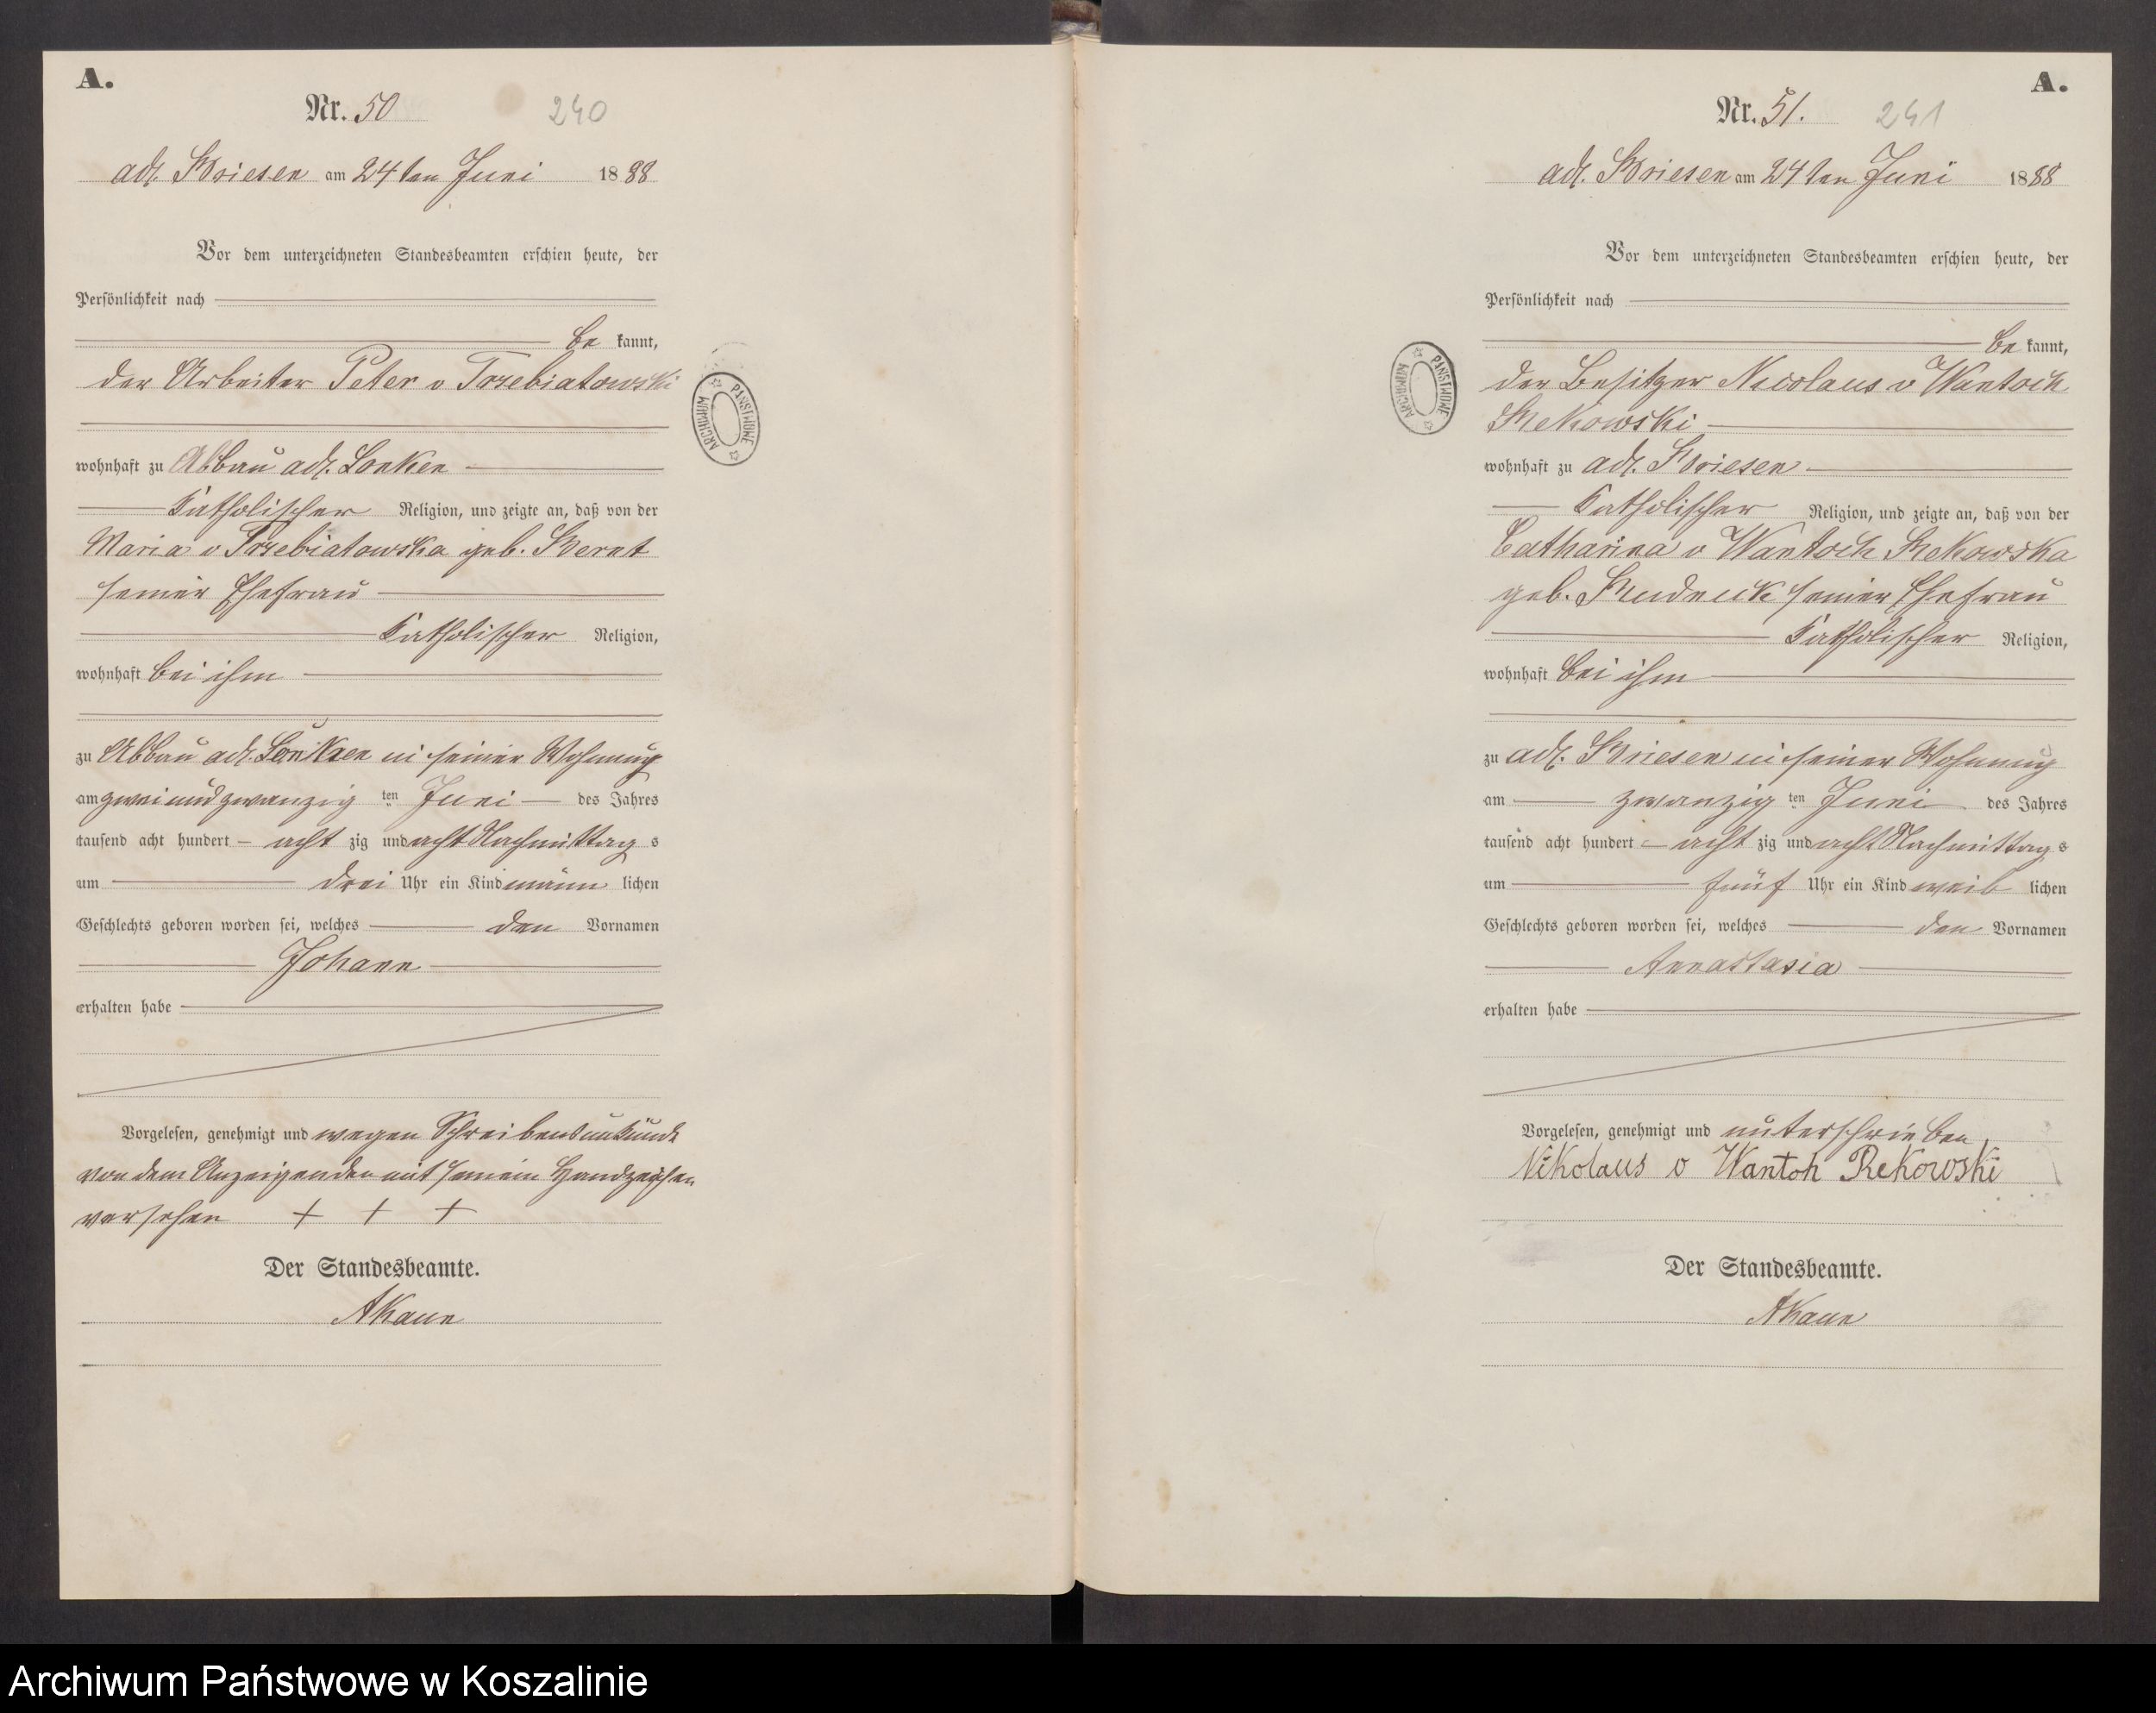 A.
Nr. 50 240
adl. Briesen am 24ten Juni 1888
Vor dem unterzeichneten Standesbeamten erschien heute, der
Persönlichkeit nach
be kannt,
der Arbeiter Peter v Trzebiatowski
wohnhaft zu Abbau adl. Lonken
Katholischer Religion, und zeigte an, daß von der
Maria v Trzebiatowska geb. Bernt
seiner Ehefrau
Katholischer Religion,
wohnhaft bei ihm
zu Abbau adl. Lonken in seiner Wohnung
am zwei und zwanzig ten Juni des Jahres
tausend acht hundert acht zig und acht Nachmittag s
um drei Uhr ein Kind männ lichen
Geschlechts geboren worden sei, welches den Vornamen
Johann
erhalten habe
Vorgelesen, genehmigt und wegen Schreibensunkunde
von dem Anzeigenden mit seinem Handzeichen
versehen + + +
Der Standesbeamte.
AKaun
ARCHIWUM PAŃSTWOWE
A.
Nr. 51. 241
adl. Briesen am 24ten Juni 1888
Vor dem unterzeichneten Standesbeamten erschien heute, der
Persönlichkeit nach
be kannt,
der Besitzer Nicolaus v Wantoch
Rekowski
wohnhaft zu adl. Briesen
Katholischer Religion, und zeigte an, daß von der
Catharina v Wantoch Rekowska
geb. seiner Ehefrau
Katholischer Religion,
wohnhaft bei ihm
zu adl. Briesen in seiner Wohnung
am zwanzig ten Juni des Jahres
tausend acht hundert acht zig und acht Nachmittag s
um fünf Uhr ein Kind weib lichen
Geschlechts geboren worden sei, welches den Vornamen
Annastasia
erhalten habe
Vorgelesen, genehmigt und unterschrieben
Nikolaus v Wantoh Rekowski
Der Standesbeamte.
AKaun
ARCHIWUM PAŃSTWOWE
Archiwum Państwowe w Koszalinie